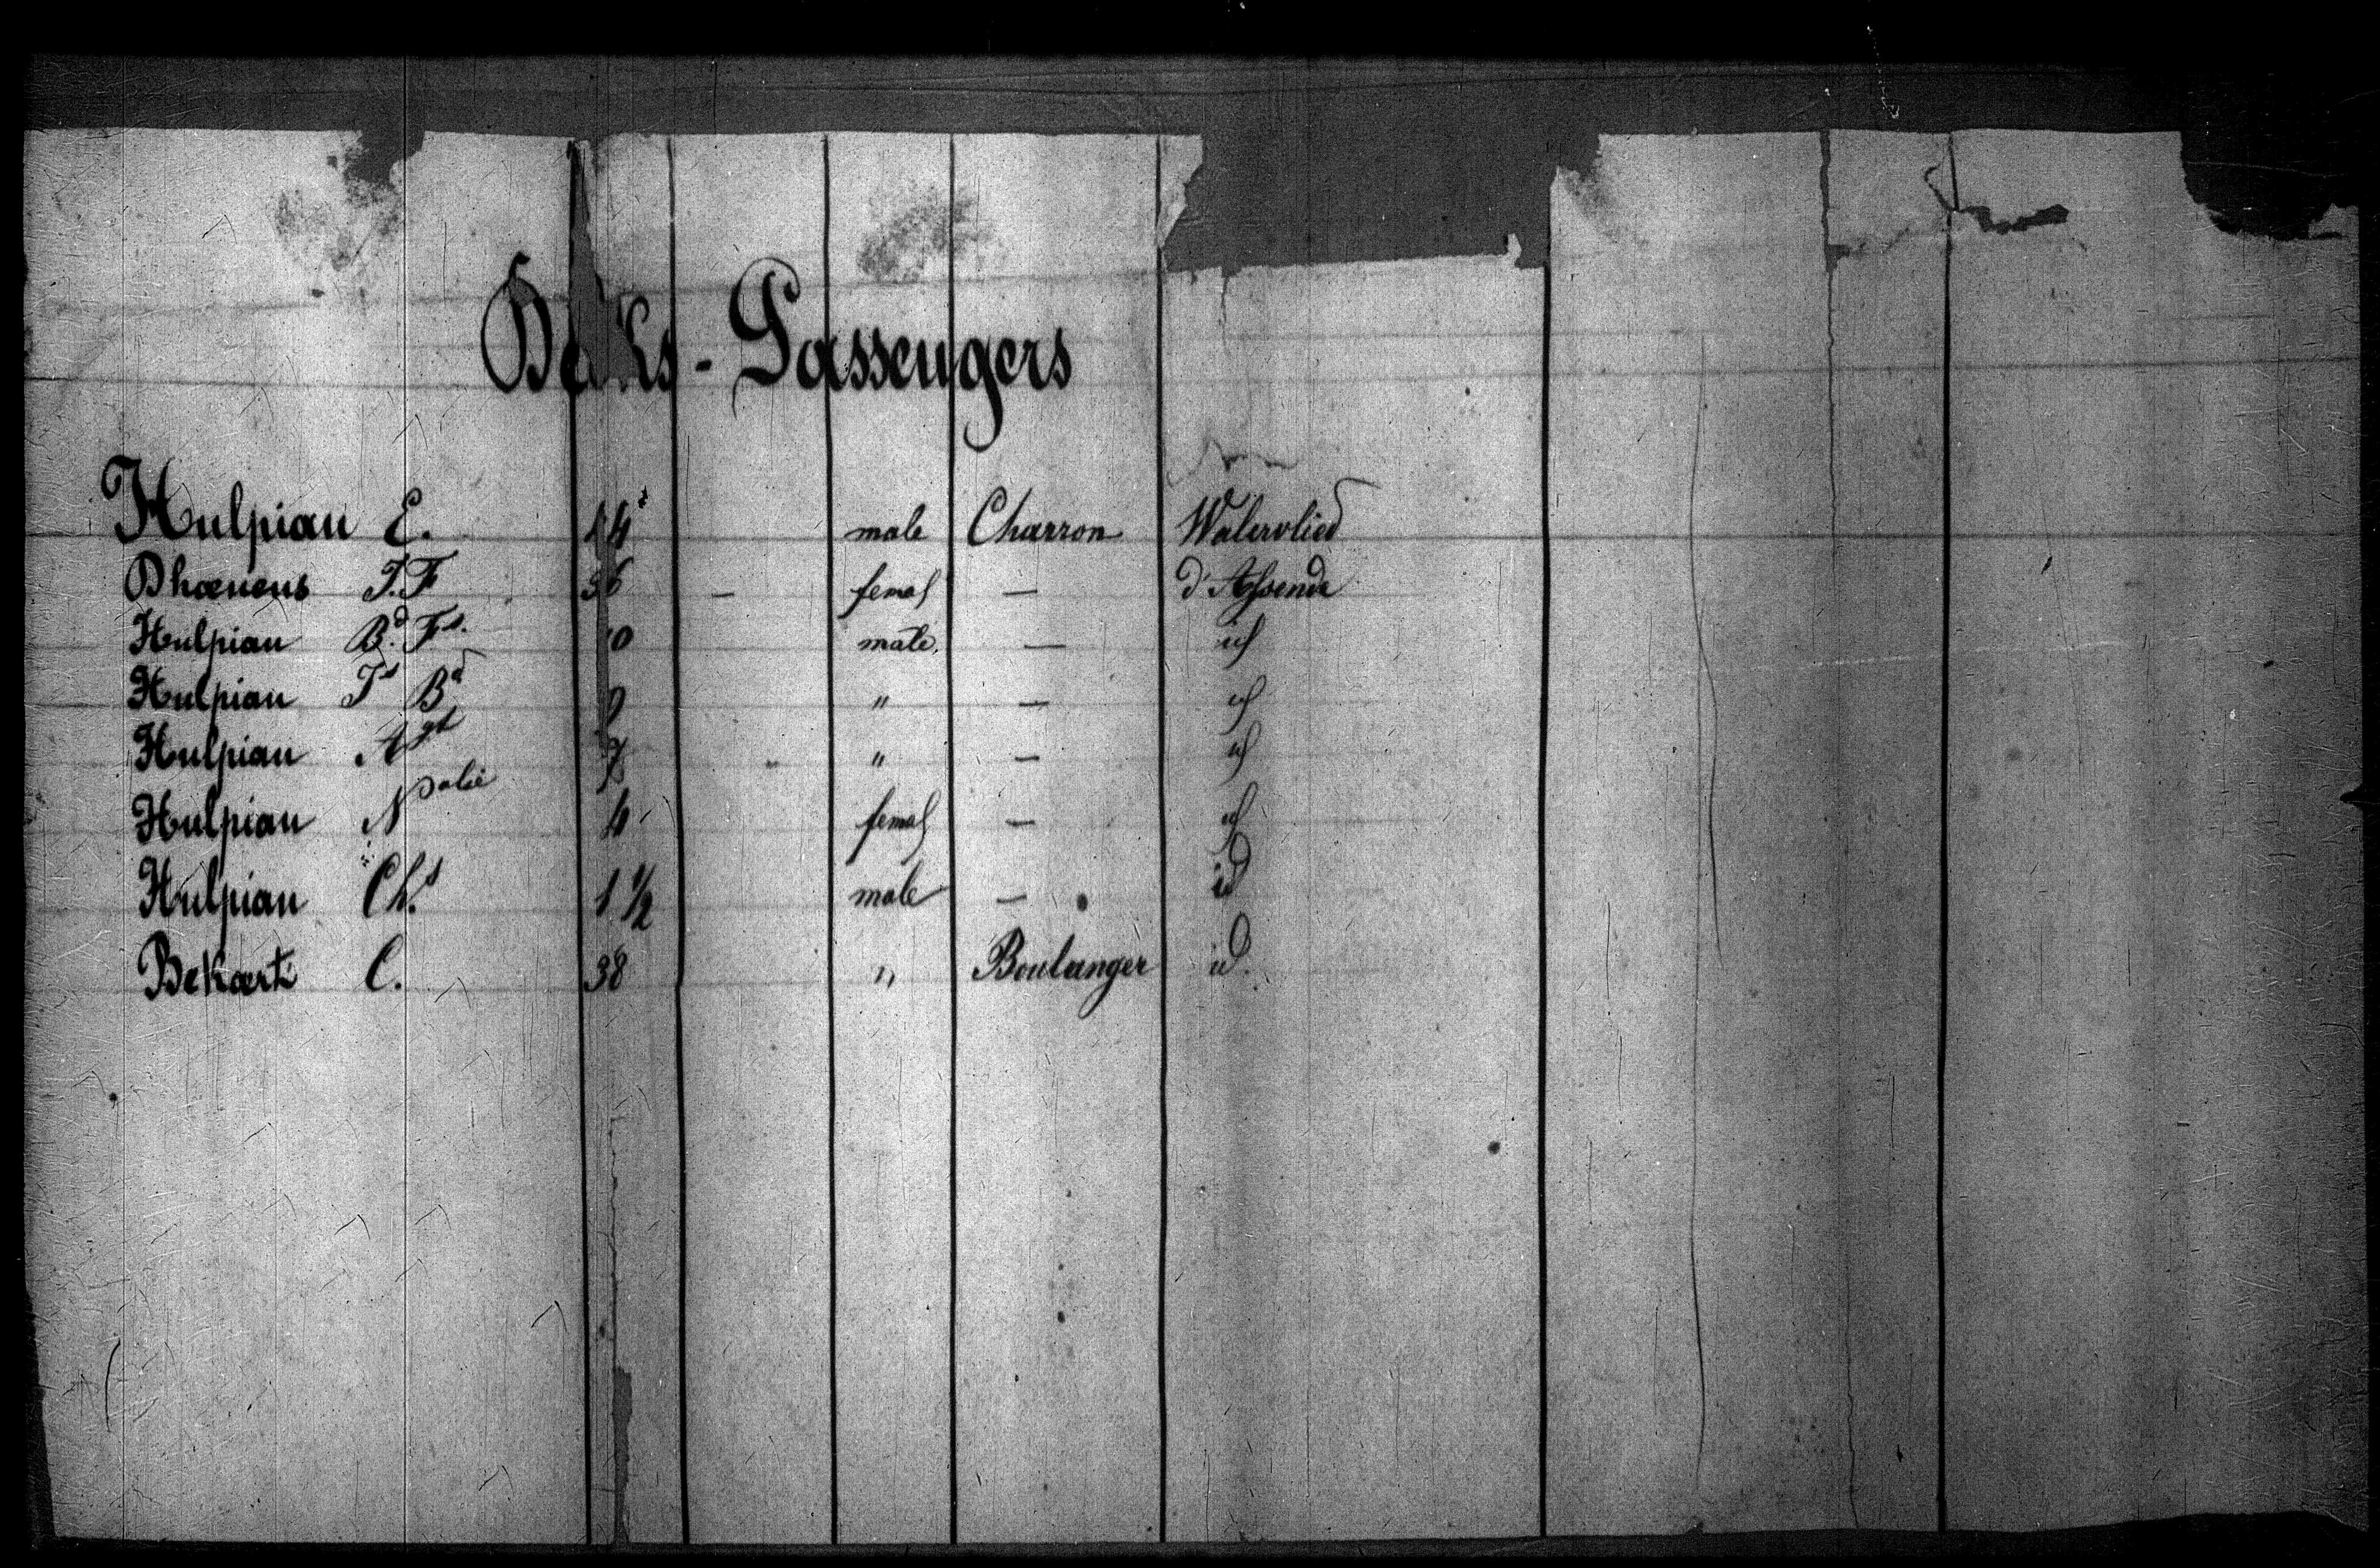 Deks-Passengers
Hulpiau E. 44 male Charron Watervlied
Dhaenens J.F 36 — femal — d'Assende
Hulpiau Bd. Fs. 10 male. — id
Hulpiau Fs Bd 9 " — id
Hulpiau Agt 7 " — id
Hulpiau Natalie 4 femal — id
Hulpiau Chs 1 1/2 male — id
Bekaert C. 38 " Boulanger id.